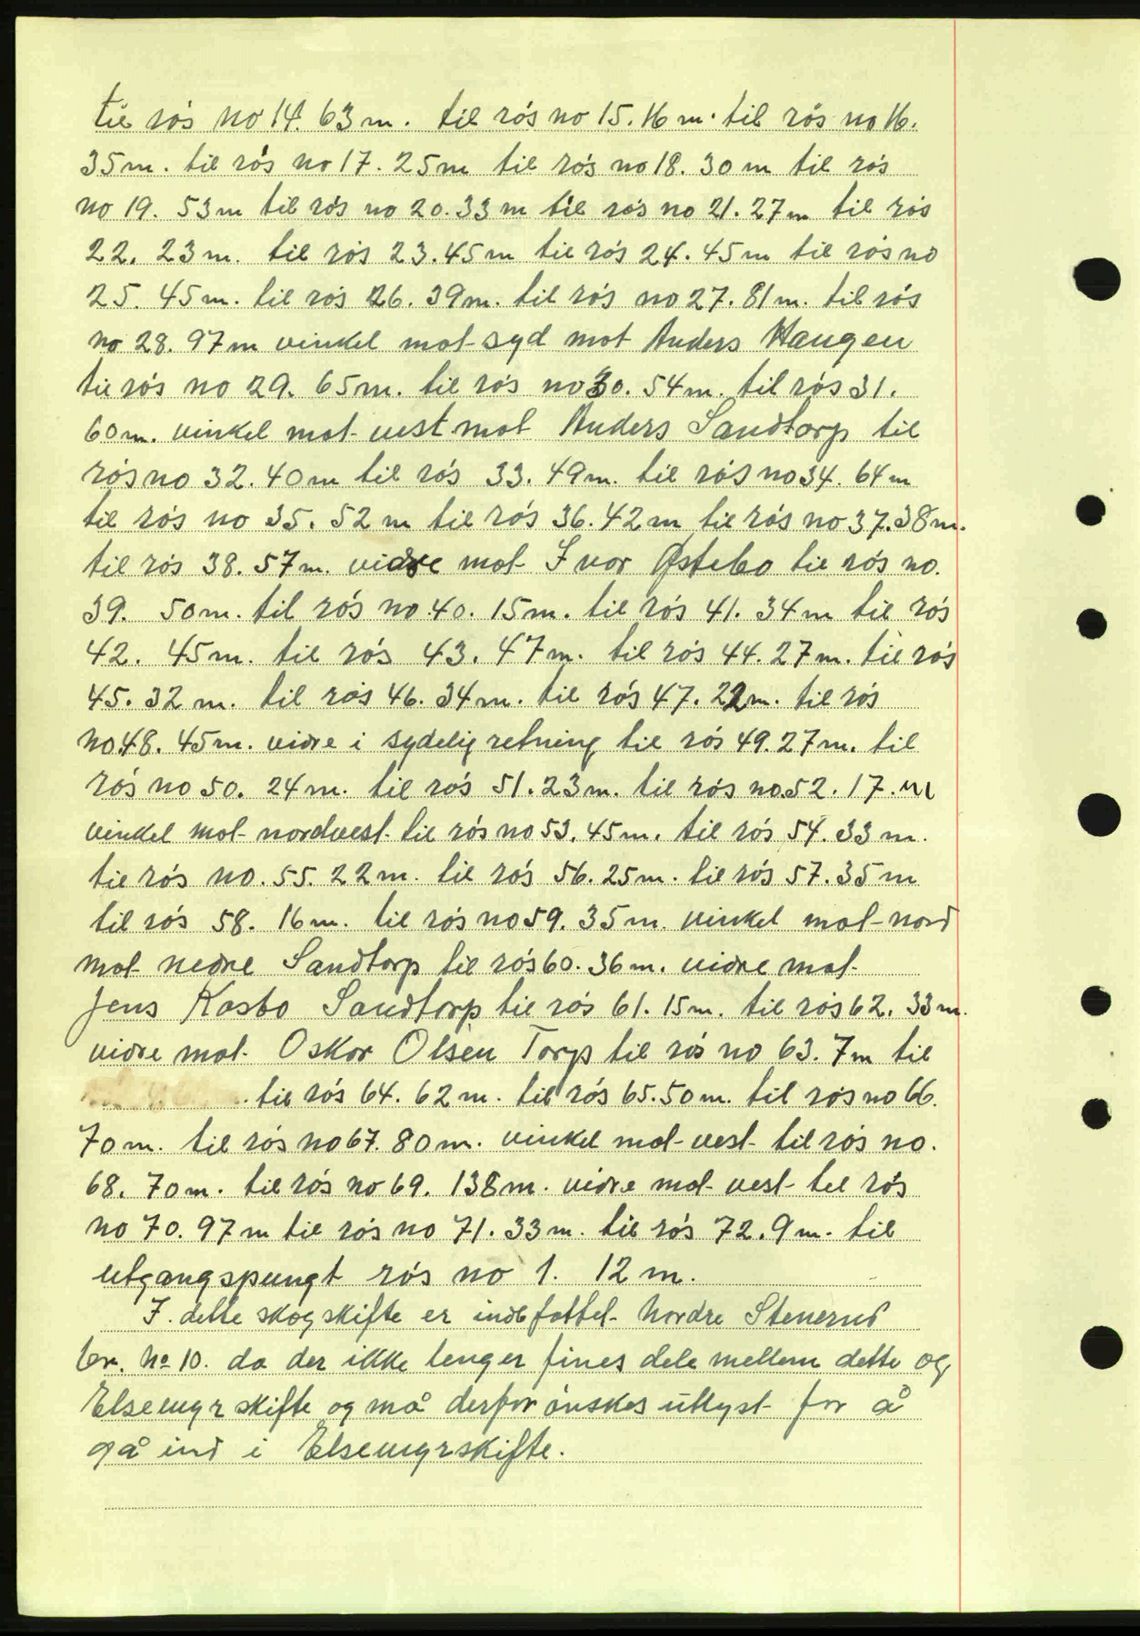 til rós no 14. 63m. til rós no 15. 16m. til rós no 16.
35m. til rós no 17. 25m til rós no 18. 30m til rós
no 19. 53m til rós no 20. 33m til rós no 21. 27m til rós
22. 23m. til rós 23. 45m til rós 24. 45m til rós no
25. 45m. til rós 26. 39m. til rós no 27. 81m. til rós
no 28. 97m vinkel mot syd mot Anders Haugen
til rós no 29. 65m. til rós no 30. 54m. til rós 31.
60m. vinkel mot vest mot Anders Sandtorp til
rós no 32. 40m til rós 33. 49m. til rós no 34. 64m
til rós no 35. 52m til rós 36. 42m til rós no 37. 38m.
til rós 38. 57m. vidre mot Ivor Østebo til rós no.
39. 50m. til rós no. 40. 15m. til rós 41. 34m til rós
42. 45m. til rós 43. 47m. til rós 44. 27m. til rós
45. 32m. til rós 46. 34m. til rós 47. 22m. til rós
no. 48. 45m. vidre i sydelig retning til rós 49. 27m. til
rós no 50. 24m. til rós 51. 23m. til rós no. 52. 17. m
vinkel mot nordvest til rós no 53. 45m. til rós 54. 33m.
til rós no. 55. 22m. til rós 56. 25m. til rós 57. 35m
til rós 58. 16m. til rós no 59. 35m. vinkel mot nord
mot nedre Sandtorp til rós 60. 36m. vidre mot
Jens Kasbo Sandtorp til rós 61. 15m. til rós 62. 33m.
vidre mot Oskar Olsen Torp til rós no 63. 7m til
til rós 64. 62m. til rós 65. 50m. til rós no 66.
70m. til rós no 67. 80m. vinkel mot vest til rós no.
68. 70m. til rós no 69. 138m. vidre mot vest til rós
no 70. 97m til rós no 71. 33m. til rós 72. 9m. til
utgangspungt rós no 1. 12m.
I. dette skogskifte er indbfattet Nordre Stenerud
br. No 10. da der ikke lenger fines dele mellem dette og
Elsemyrskifte og må derfor ónskes utlyst for å
gå ind i Elsemyrskifte.